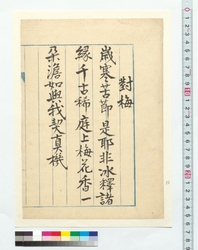 對梅
歲寒苦節是耶非冰釋諸
緣千古稀庭上梅花香一
朵澹如與我契真機